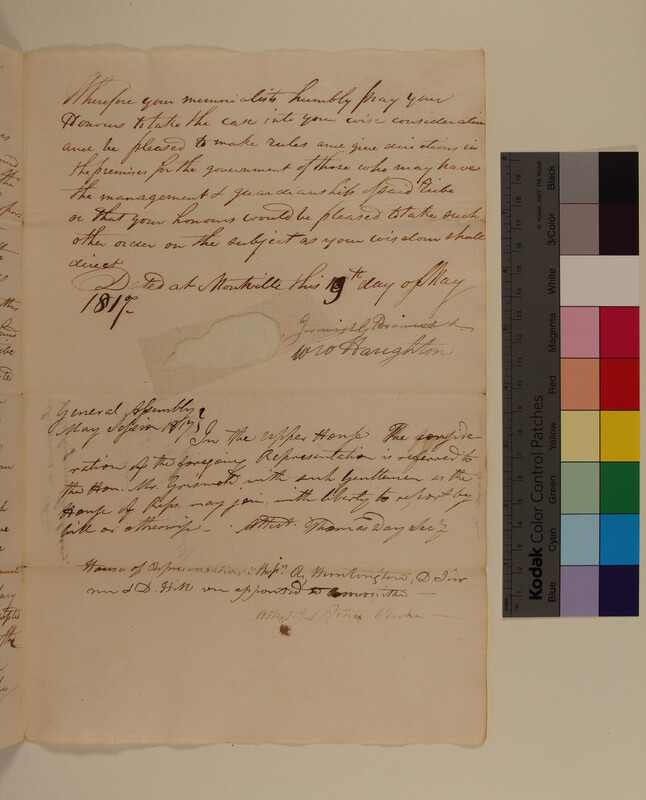 Wherefore your memorialists humbly pray your
Honours to take the case into your wise consideration
and be pleased to make rules and give directions in
the premises for the government of those who may have
the management & guardianship of said tribe
or that your honours would be pleased to take such
other order on the subject as your wisdom shall
direct
Dated at Montville this 19th day of May
1817
W W Haughton
General Assembly
May Session 1817
In the upper House. The conside-
ration of the foregoing Representation is referred to
the Hon. Mr. Griswold with such Gentlemen as the
House of Reps. may join, with liberty to report by
bill or otherwise - Attest Thomas Day Secy
House of Representatives R. Huntington, D.
are appointed
Attest Clerk
Kodak Color Control Patches
© Kodak, 2007 TM: Kodak
Blue
Cyan
Green
Yellow
Red
Magenta
White
3/Color
Black